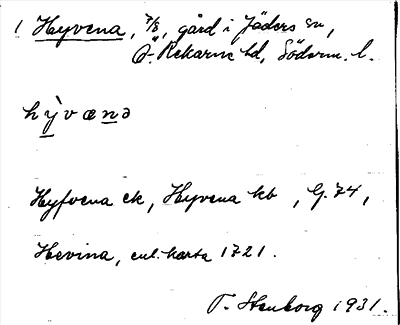 1 Hyvena, 7/8, gård i Jäders sn,
Ö. Rekarne hd, Söderm. l.
hy̆vænə
Hyfvena ek, Hyvena kb, G. 74,
Hevina, enl. karta 1721.
T. Stenborg 1931.